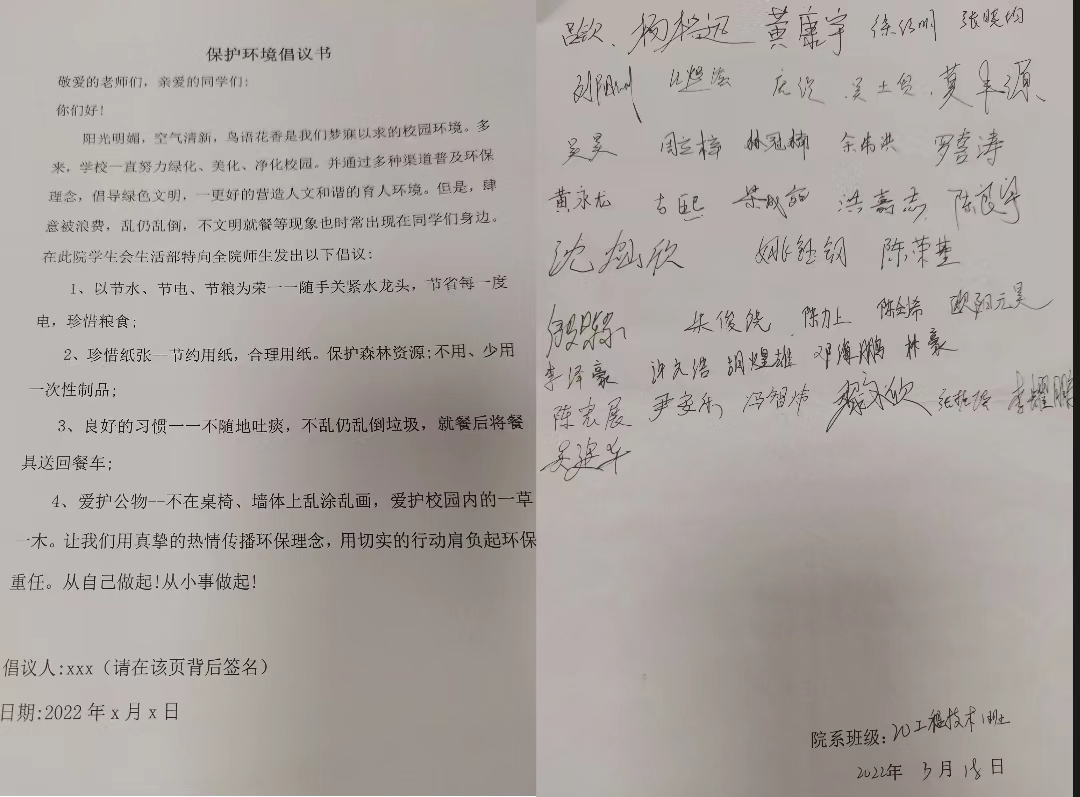 保护环境倡议书
敬爱的老师们，亲爱的同学们:
你们好!
阳光明媚，空气清新，鸟语花香是我们梦寐以求的校园环境。多
来，学校一直努力绿化、美化、净化校园。并通过多种渠道普及环保
理念，倡导绿色文明，一更好的营造人文和谐的育人环境。但是，肆
意被浪费，乱仍乱倒，不文明就餐等现象也时常出现在同学们身边。
在此院学生会生活部特向全院师生发出以下倡议:
1、以节水、节电、节粮为荣一一随手关紧水龙头，节省每一度
电，珍惜粮食;
2、珍惜纸张一节约用纸，合理用纸。保护森林资源;不用、少用
一次性制品;
3、良好的习惯一一不随地吐痰，不乱仍乱倒垃圾，就餐后将餐
具送回餐车;
4、爱护公物--不在桌椅、墙体上乱涂乱画，爱护校园内的一草
一木。让我们用真挚的热情传播环保理念，用切实的行动肩负起环保
重任。从自己做起!从小事做起!
倡议人:xxx（请在该页背后签名）
日期:2022 年 x 月 x 日
黄康宇 张晓均
莫丰源
吴昊 林冠楠 罗奎涛
黄永龙 洪嘉志 陈良宇
沈灿欣 姚钰钢 陈荣基
朱俊饶 陈力上 欧阳元昊
李泽豪 许文浩 胡煌雄 邓海鹏 林豪
陈宏展 尹安乐 冯智炜 黎永欣 李耀鹏
吴建华
院系班级: 工程技术
2022年 3月 18日